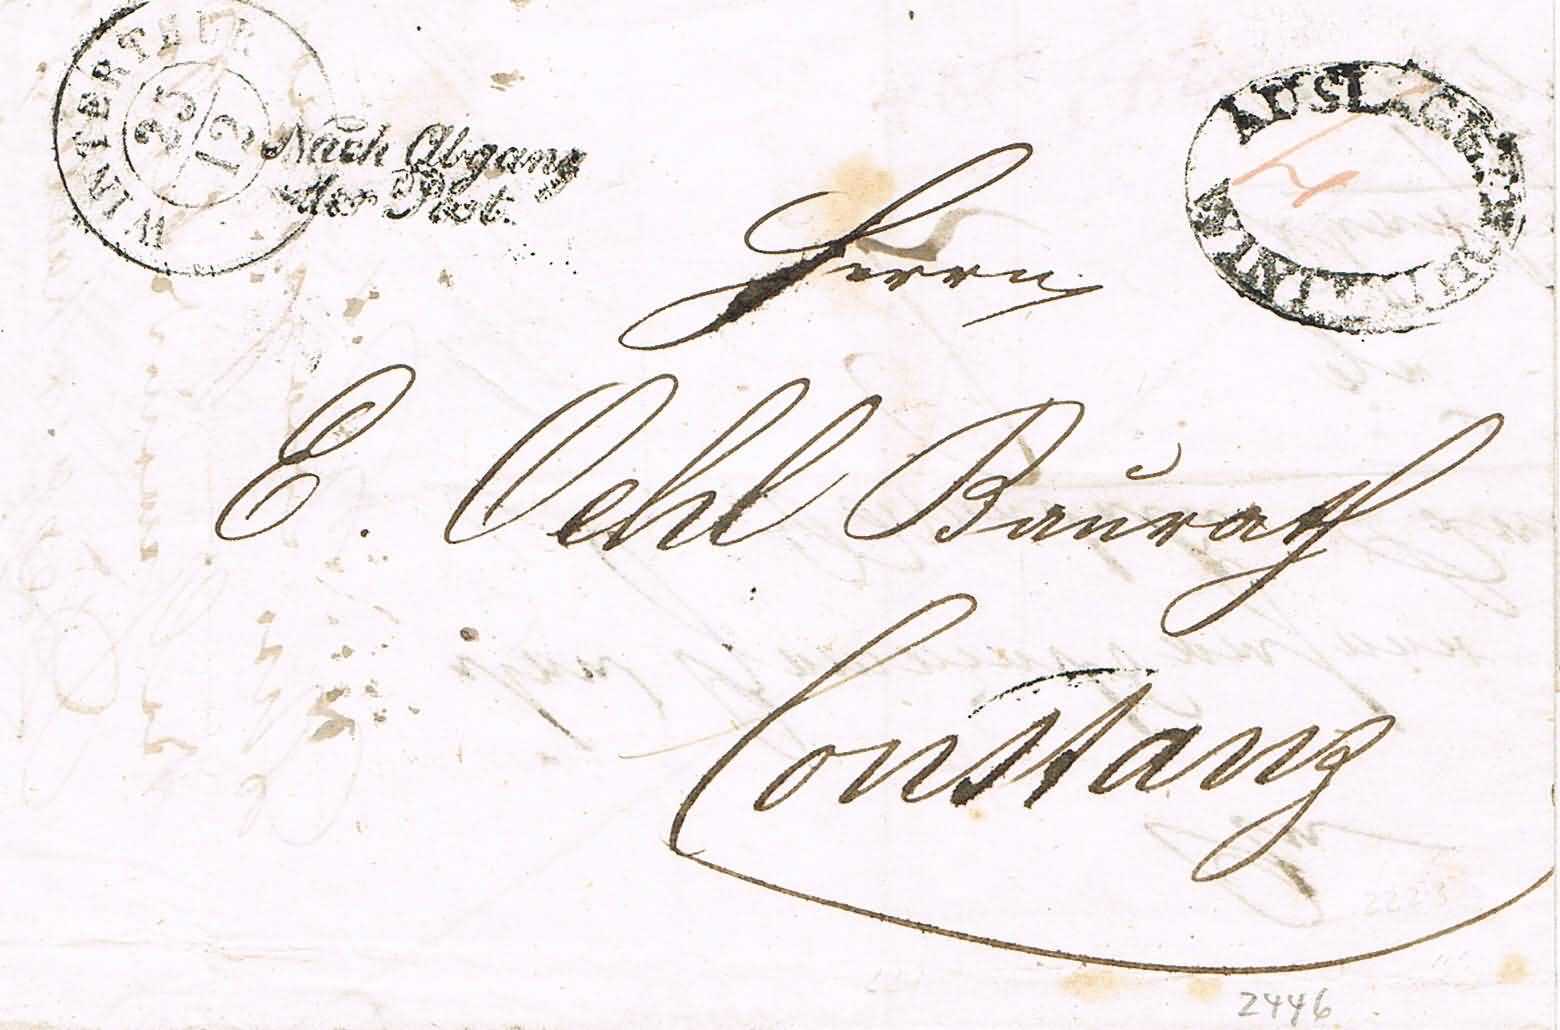 WINTERTHUR
23
12
Nach Abgang
der Post.
AUSLAGEN
Herrn
E. Oehl Baurath
Constanz
2223
2446